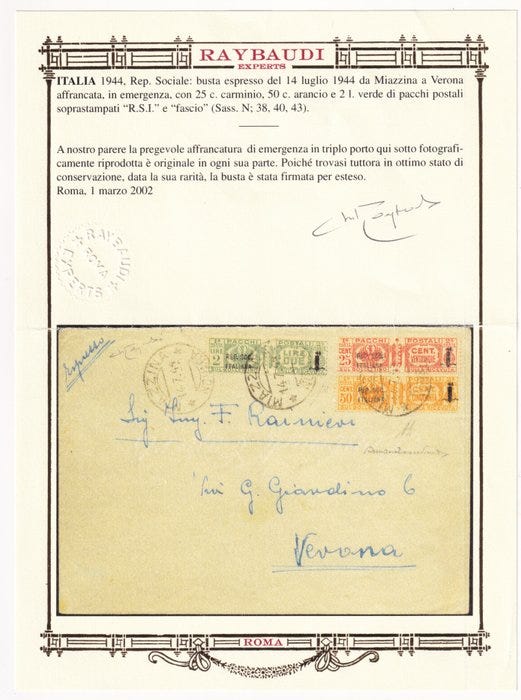 RAYBAUDI
EXPERTS
ITALIA 1944. Rep. Sociale: busta espresso del 14 luglio 1944 da Miazzina a Verona
affrancata, in emergenza, con 25 c. carminio, 50 c. arancio e 2 l. verde di pacchi postali
soprastampati “R.S.I.” e “fascio” (Sass. N; 38, 40, 43).
A nostro parere la pregevole affrancatura di emergenza in triplo porto qui sotto fotografi-
camente riprodotta è originale in ogni sua parte. Poiché trovasi tuttora in ottimo stato di
conservazione, data la sua rarità, la busta è stata firmata per esteso.
Roma, 1 marzo 2002
RAYBAUDI
ROMA
EXPERTS
Espresso
PACCHI POSTALI
LIRE 2 LIRE DUE
REP. SOC. ITALIANA
PACCHI POSTALI
CENT. 25 CENT. VENTICINQUE
REP. SOC. ITALIANA
CENT. 50
REP. SOC. ITALIANA
MIAZZINA
Sig. Ing. F. Rainieri
Via G. Giardino 6
Verona
ROMA